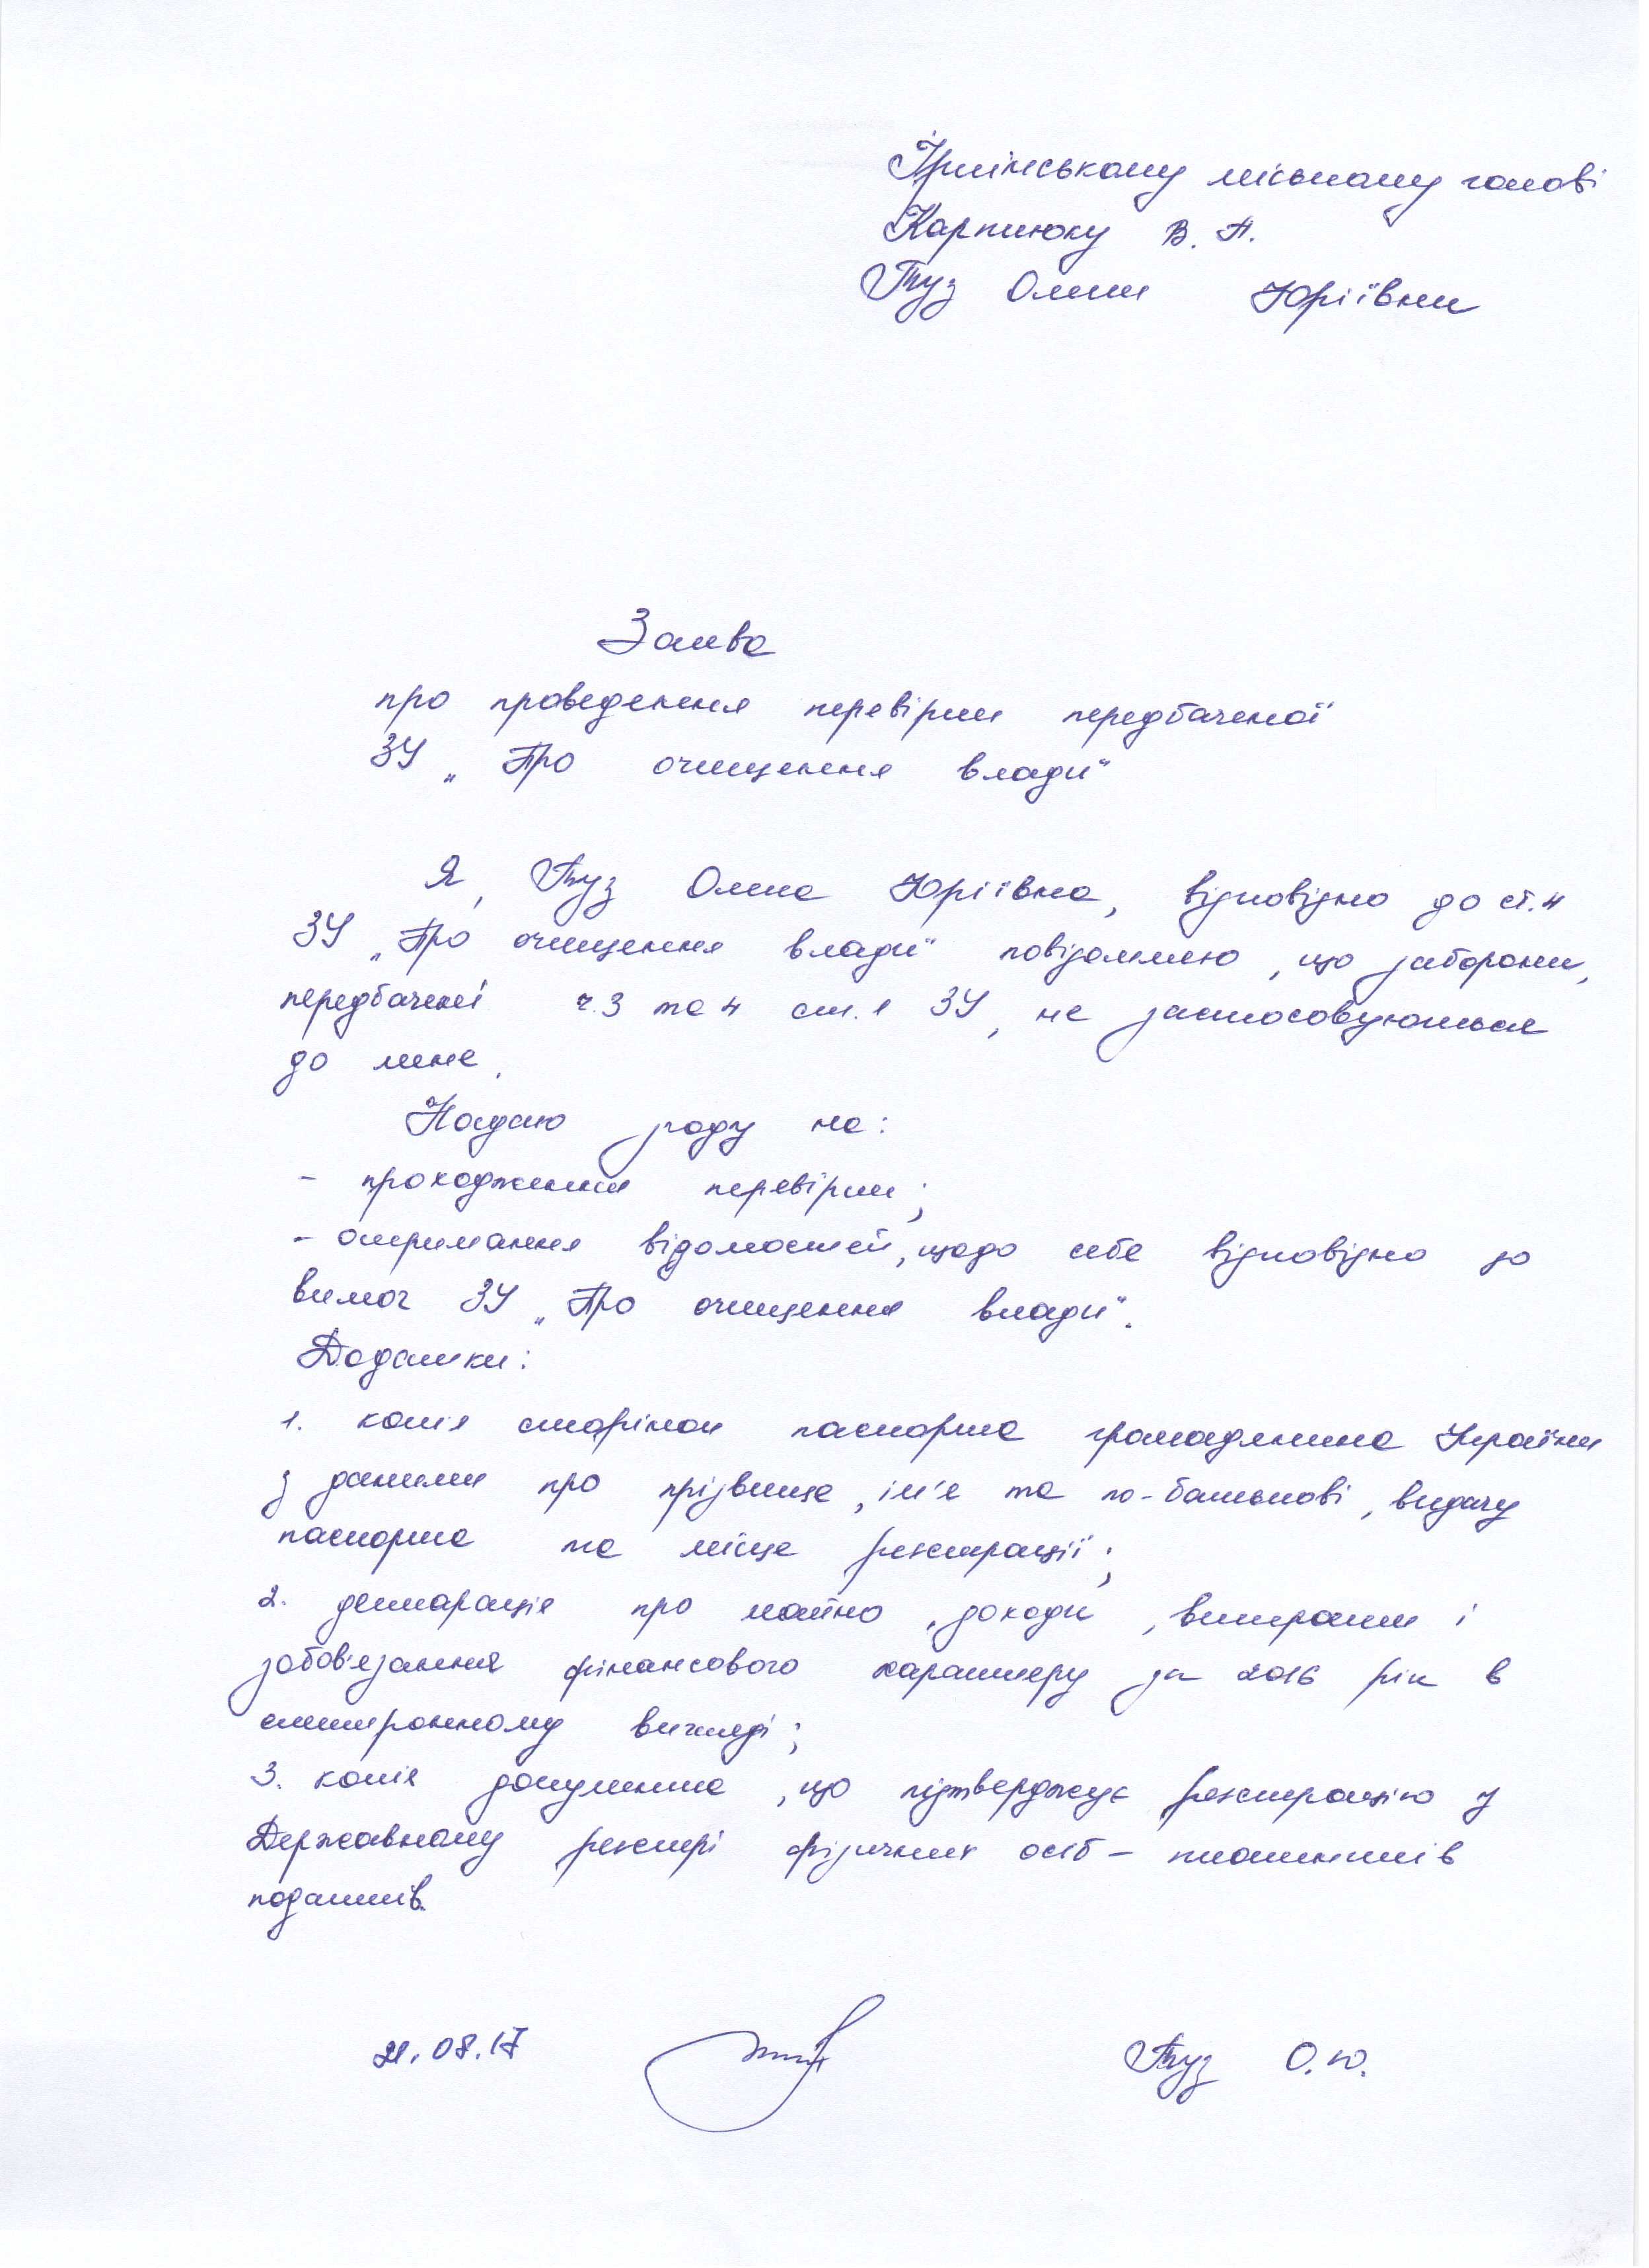 Ірпінському міському голові
Карплюку В. А.
Туз Олени Юріївни
Заява
про проведення перевірки передбаченої
ЗУ „Про очищення влади“
Я, Туз Олена Юріївна, відповідно до ст. 4
ЗУ „Про очищення влади“ повідомляю, що заборони,
передбачені ч. 3 та 4 ст. 1 ЗУ, не застосовуються
до мене.
Надаю згоду на:
- проходження перевірки;
- отримання відомостей, щодо себе відповідно до
вимог ЗУ „Про очищення влади“.
Додатки:
1. копія сторінок паспорта громадянина України
з даними про прізвище, ім'я та по-батькові, видачу
паспорта та місце реєстрації;
2. декларація про майно, доходи, витрати і
зобов'язання фінансового характеру за 2016 рік в
електронному вигляді;
3. копія документа, що підтверджує реєстрацію у
Державному реєстрі фізичних осіб – платників
податків.
21.08.17 Туз О.Ю.